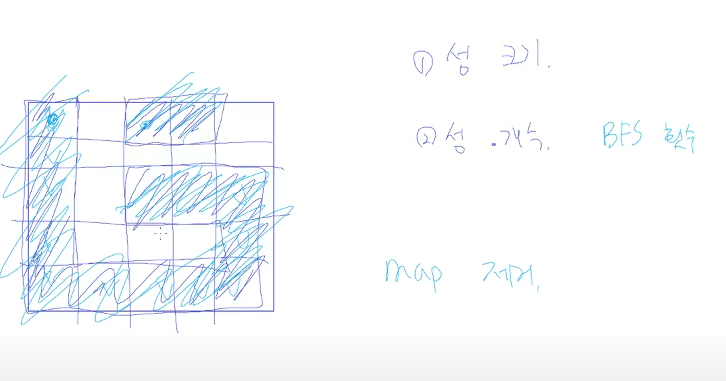 ① 섬 크기.
② 섬 .개수. BFS 횟수
map